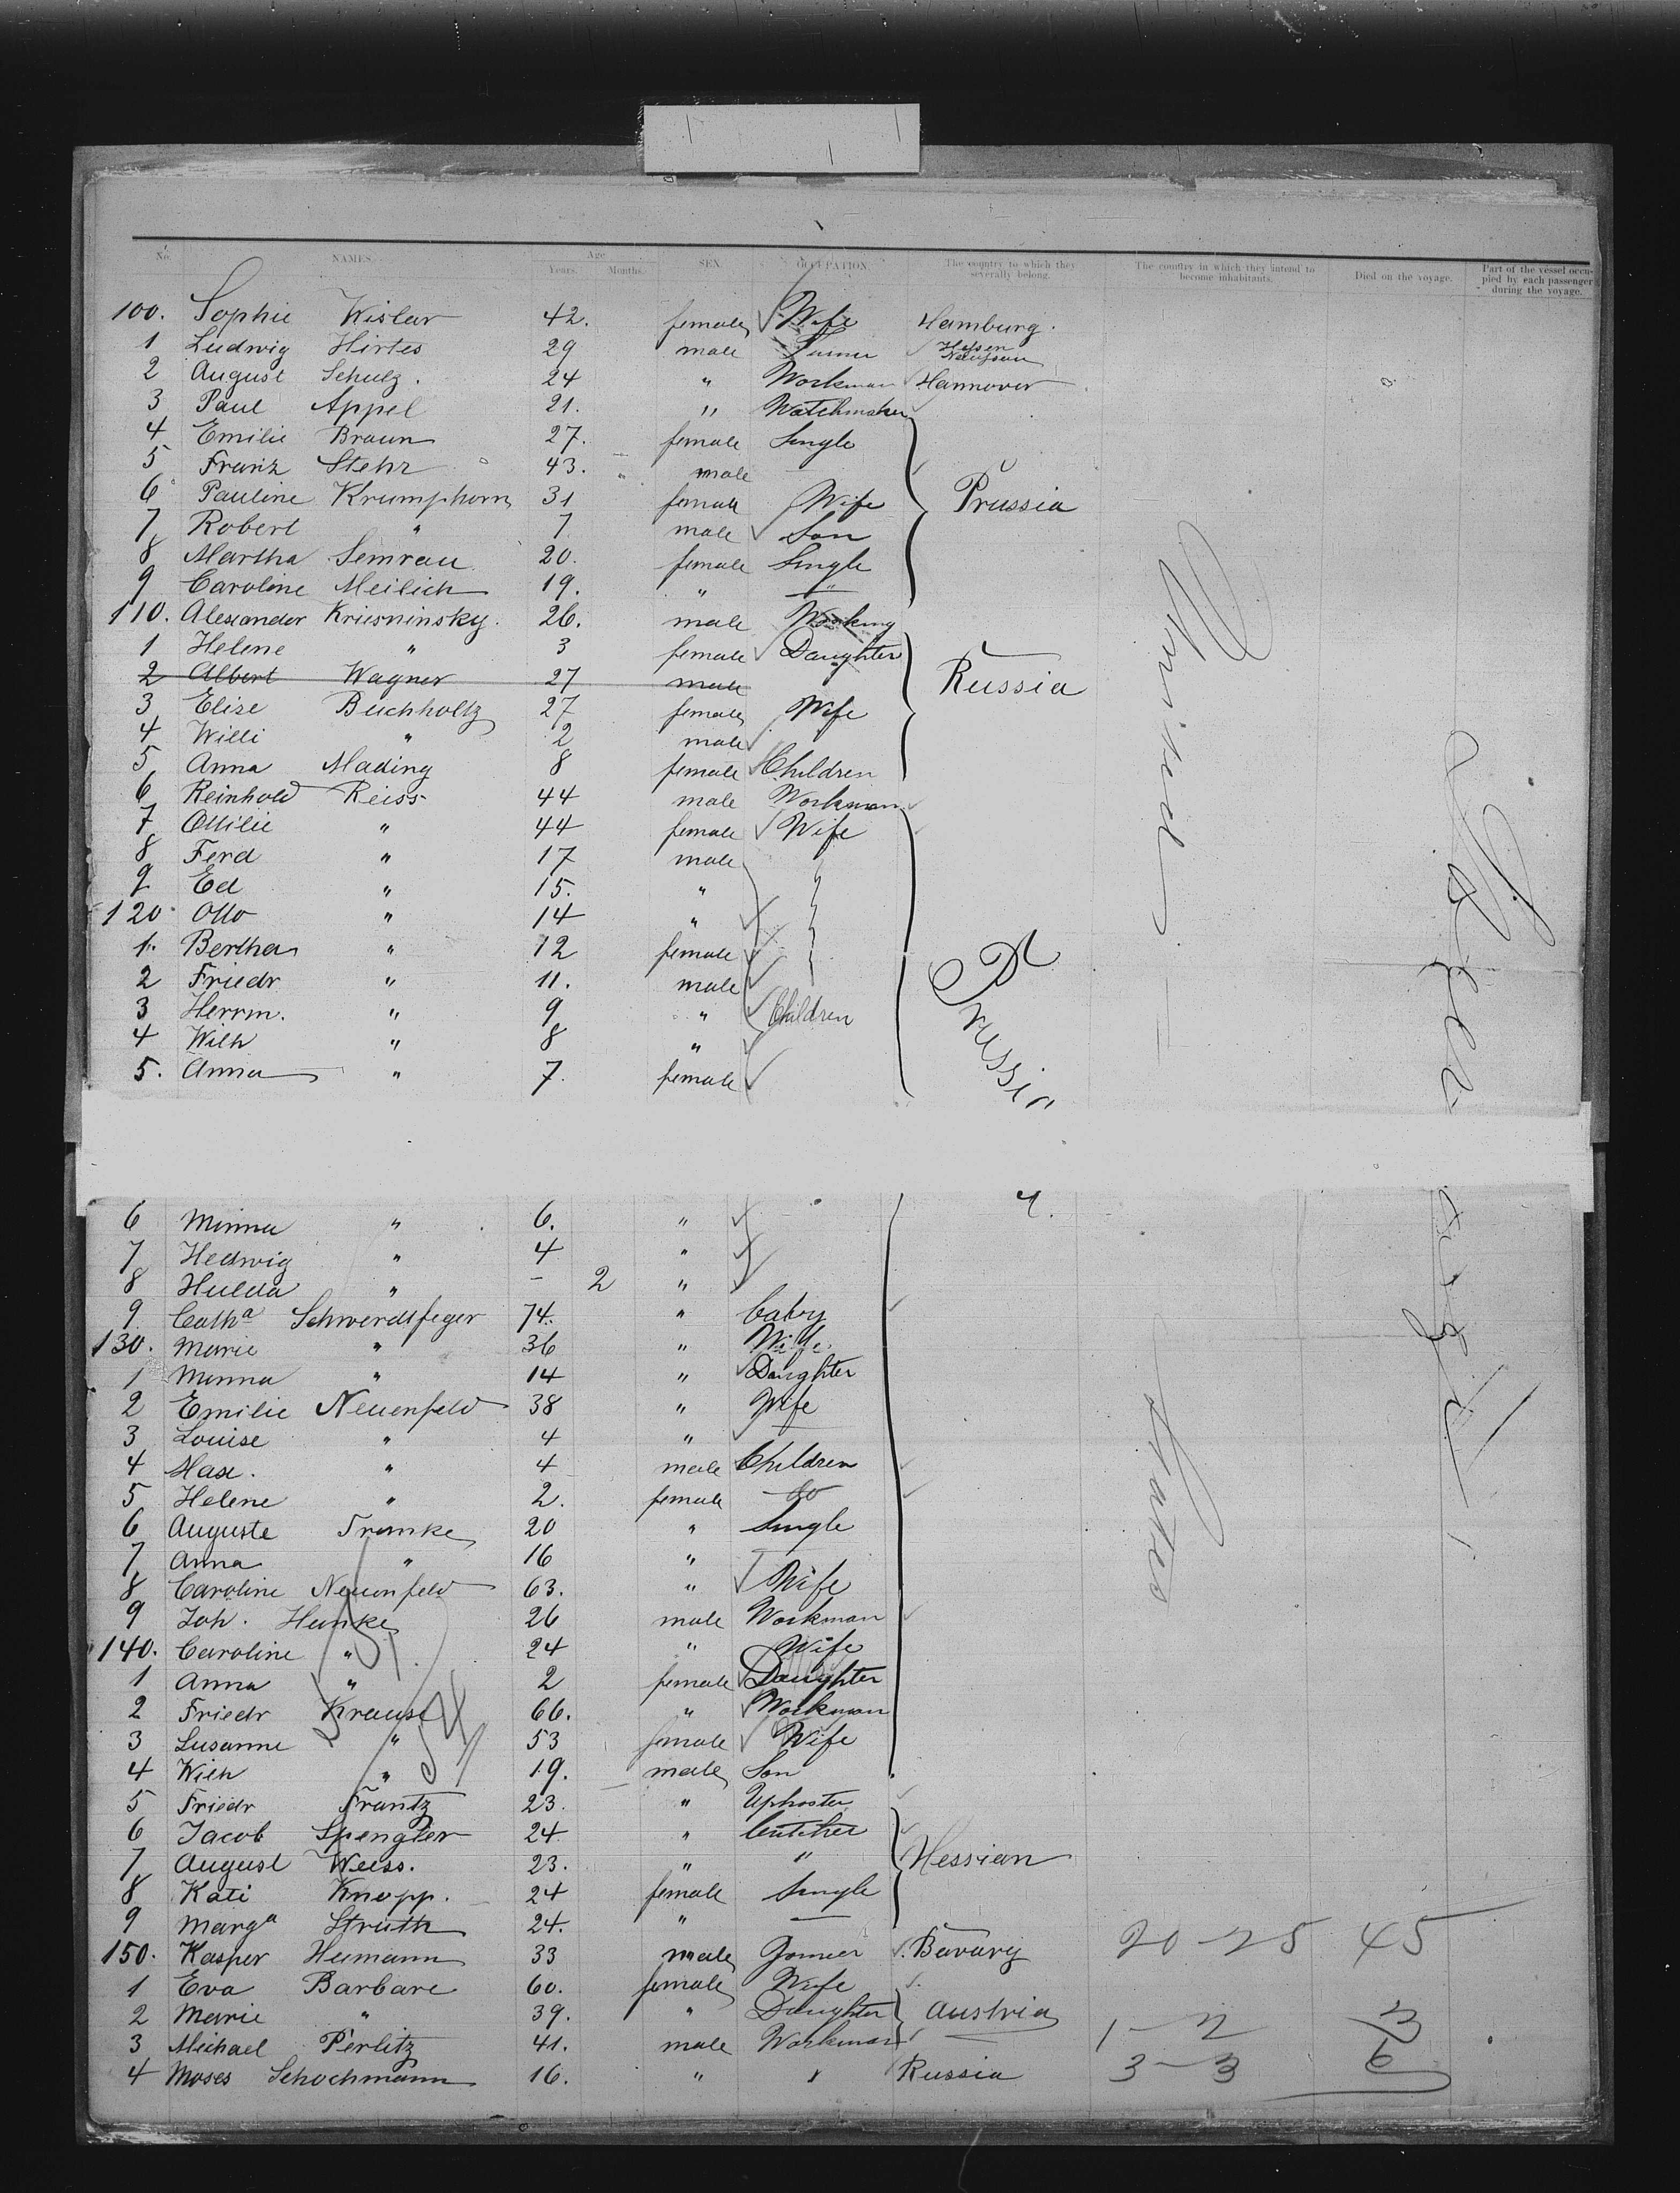 No. NAMES. Age Years. Months. SEX. OCCUPATION. The country to which they severally belong. The country in which they intend to become inhabitants. Died on the voyage. Part of the vessel occupied by each passenger during the voyage.
100. Sophie Kislar 42. female Wife Hamburg.
1 Ludwig Hirtes 29 male
2 August Schulz. 24 " Workman Hannover
3 Paul Appel 21. " Watchmaker
4 Emilie Braun 27. female Single
5 Franz Stehr 43. male —
6 Pauline Krumphorn 31 female Wife Prussia
7 Robert " 7 male Son
8 Martha Semrau 20. female Single
9 Caroline Meilich 19. " "
110. Alexander Kriesninsky. 26. male
1 Helene " 3 female Daughter Russia
2 Albert Wagner 27 male
3 Elise Buchholtz 27 female Wife
4 Willi " 2 male
5 Anna Mading 8 female Children
6 Reinhold Reiss 44 male Workman
7 Ottilie " 44 female Wife
8 Ferd " 17 male
9 Ed " 15. "
120 Otto " 14 "
1. Bertha " 12 female
2 Friedr " 11. male
3 Herrm. " 9 " Children
4 Wilh " 8 "
5. Anna " 7. female
Prussia
6 Minna " 6. "
7 Hedwig " 4 "
8 Hulda " - 2 "
9 Catha Schwerdtfeger 74. "
130. Marie " 36 " Wife
1 Minna " 14 " Daughter
2 Emilie Neuenfeld 38 " Wife
3 Louise " 4 "
4 Max. " 4 male Children
5 Helene " 2. female do
6 Auguste Franke 20 " Single
7 Anna " 16 "
8 Caroline Neuenfeld 63. " Wife
9 Joh. Hunke 26 male Workman
140. Caroline " 24 " Wife
1 Anna " 2 female Daughter
2 Friedr Krause 66. " Workman
3 Susanne " 53 female Wife
4 Wilh " 19. male Son
5 Friedr Frantz 23. " Uphoster
6 Jacob Spengler 24 " Cutcher
7 August Weiss. 23. " " Hessian
8 Kati Knopp. 24 female Single
9 Marga Struth 24. " —
150. Kasper Heimann 33 male Bavary 20-25 45
1 Eva Barbare 60. female Wife
2 Marie " 39. " Daughter Austria 1-2 3
3 Michael Perlitz 41. male Workman
4 Moses Schochmann 16. " " Russia 3-3 6
United
States